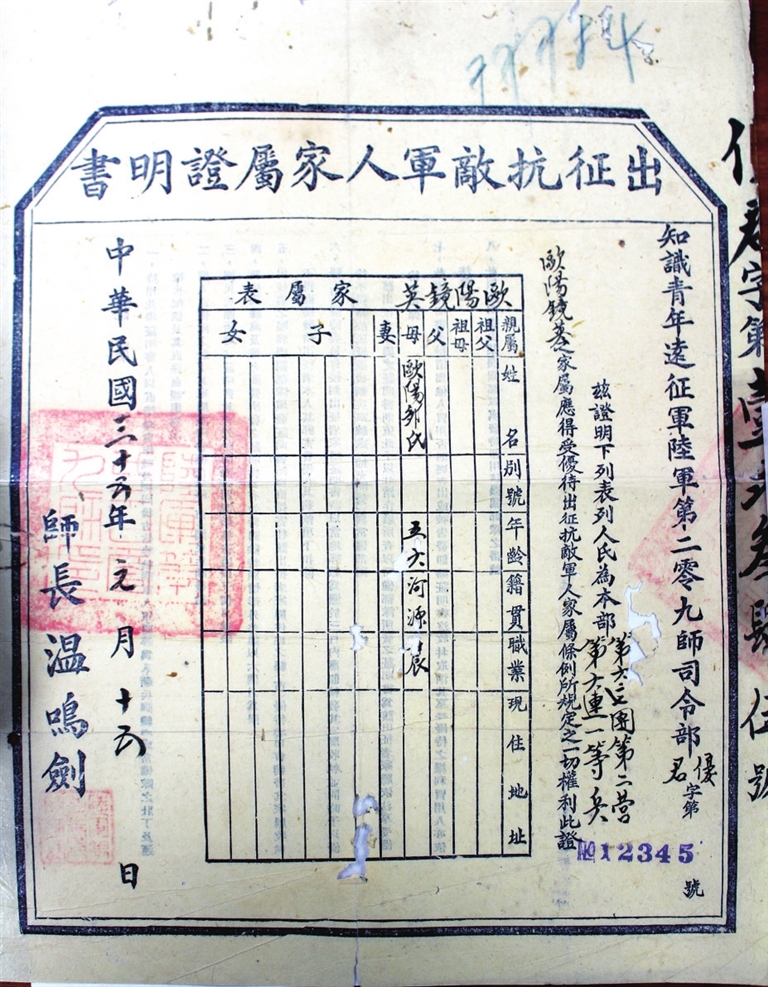 出征抗敵軍人家屬證明書
知識青年遠征軍陸軍第二零九師司令部
優
名
字第
№12345
號
茲證明下列表列人民為本部
第六
團第二營
第六連一等兵
歐陽鏡英之家屬應得受優待出征抗敵軍人家屬條例所規定之一切權利此證
歐陽鏡英家屬表
親屬 祖父 祖母 父 母 妻 子 女
姓名 歐陽鄒氏
別號
年齡 五六
籍貫 河源
職業 農
現住地址
中華民國三十五年元月十五日
師長溫鳴劍
字第壹
號